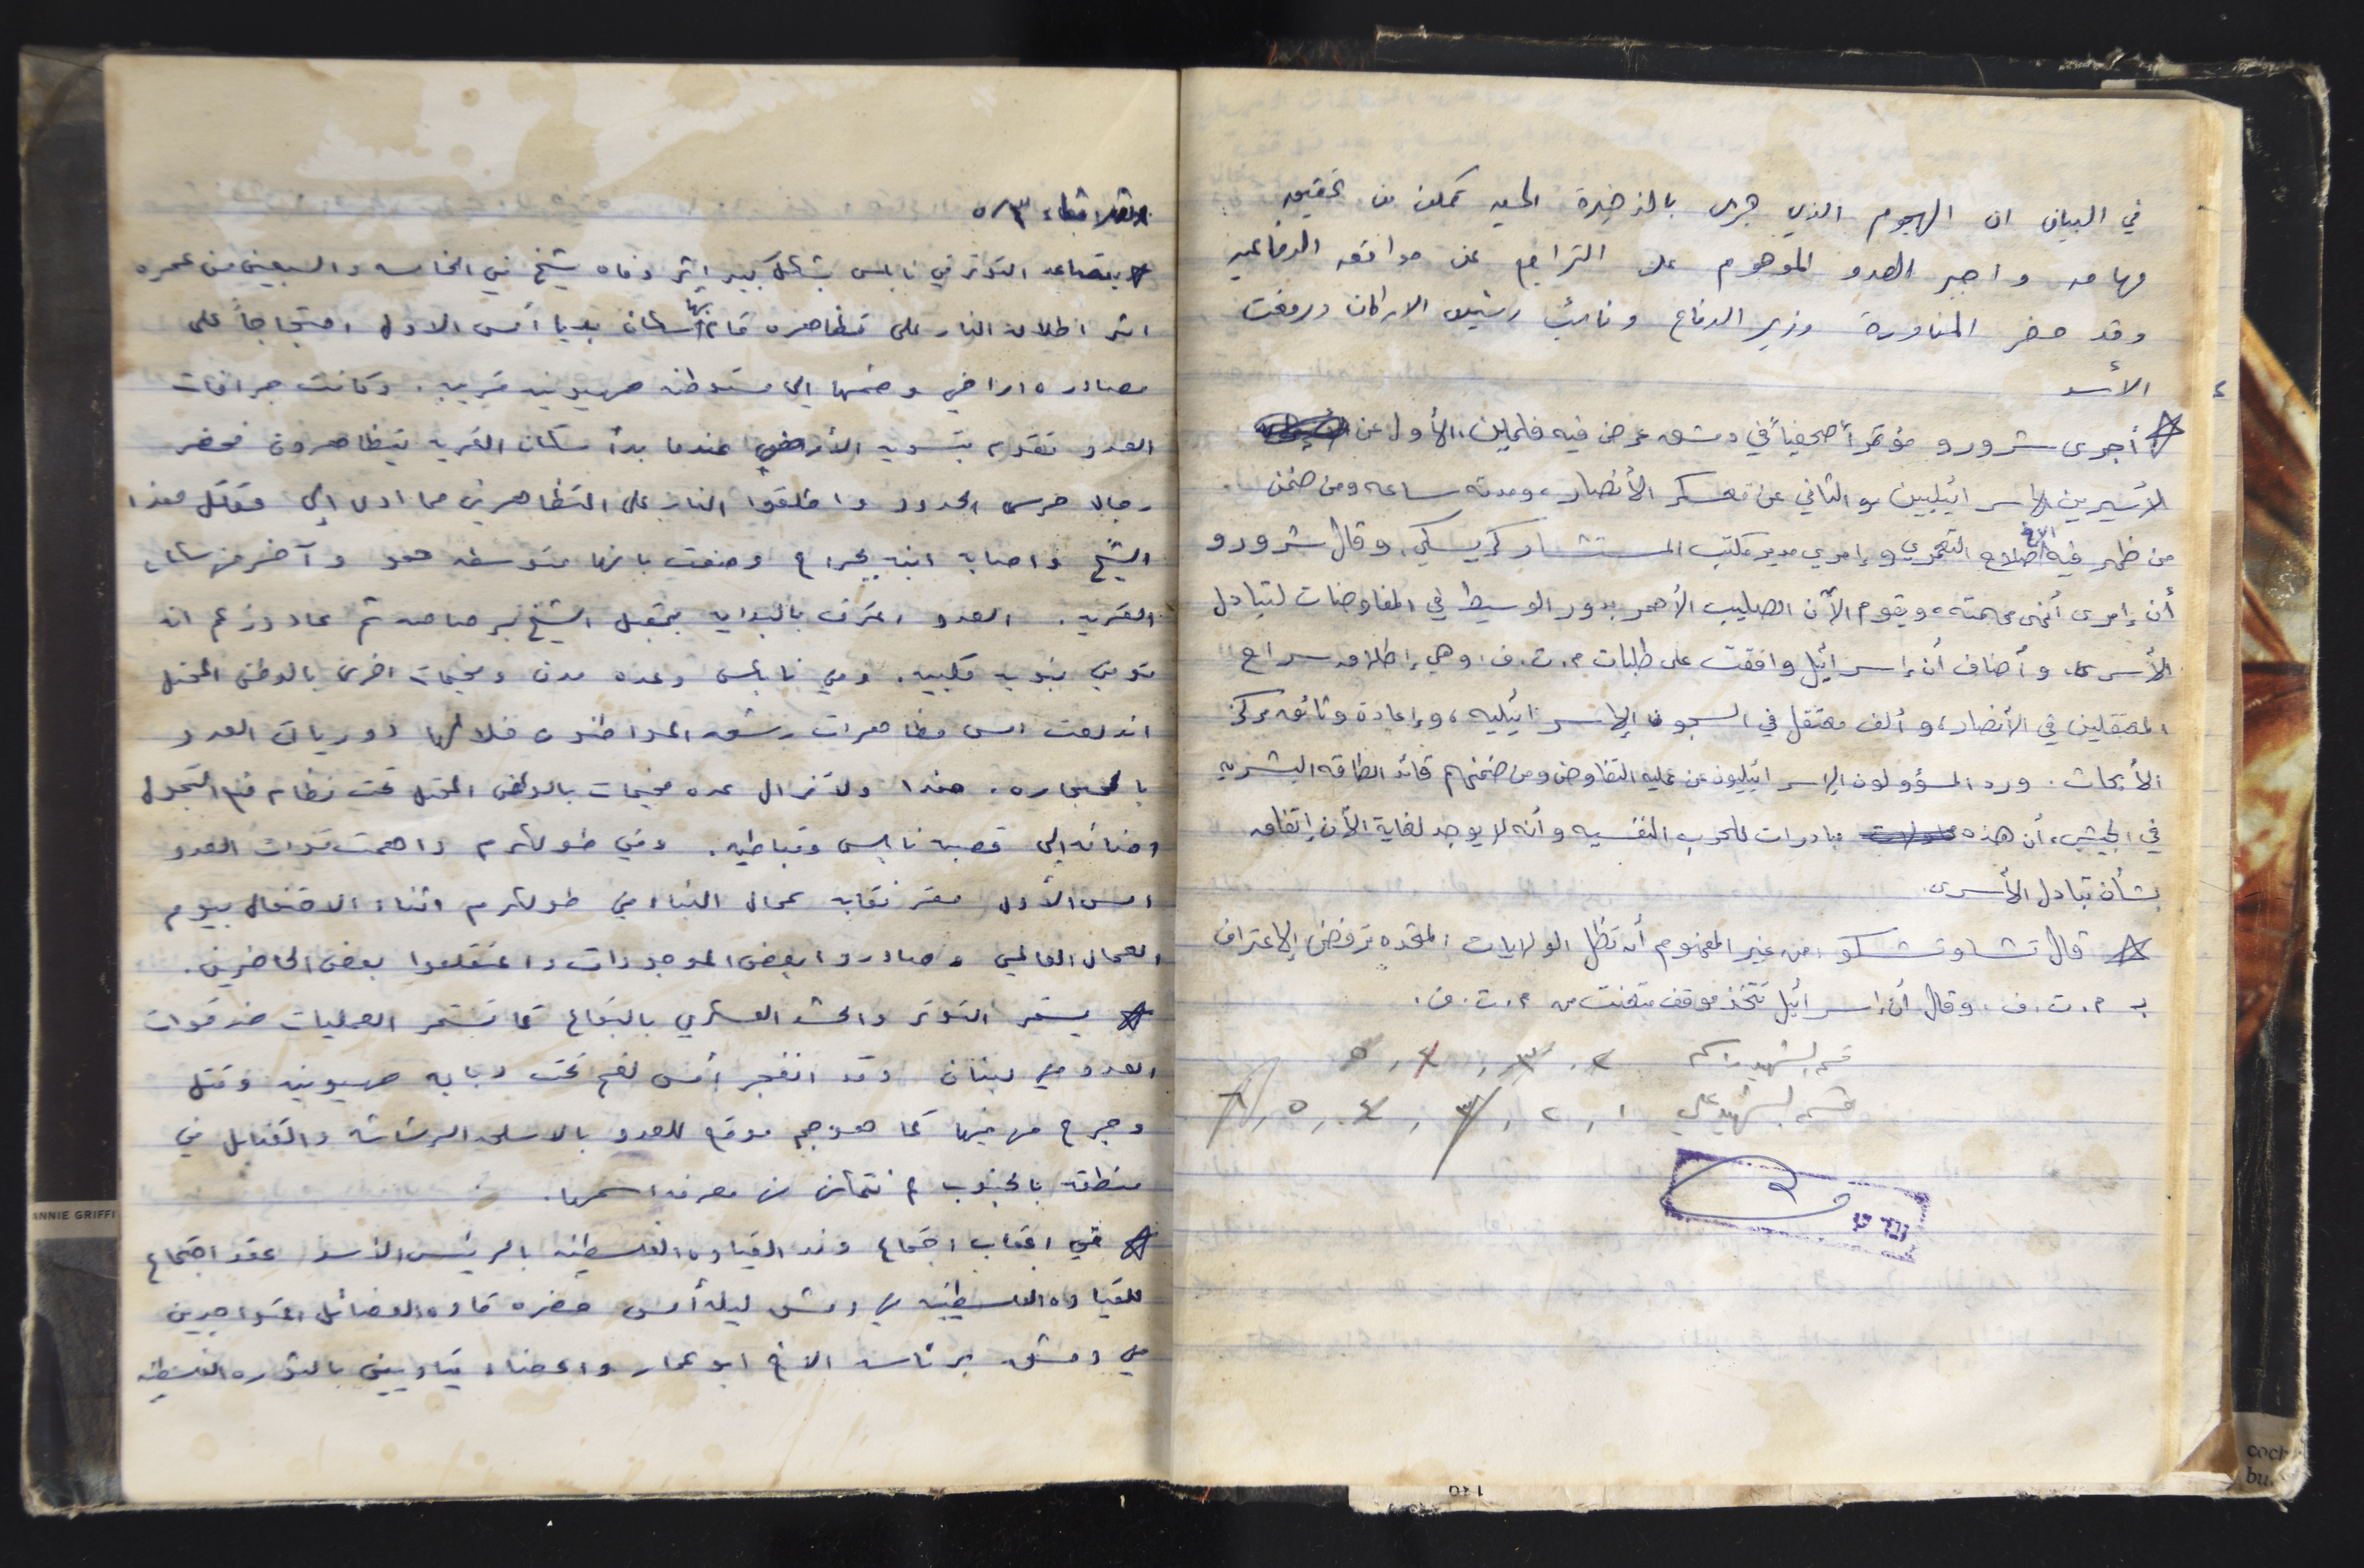 في البيان ان الهجوم الذي جرى بالذخيرة الحيه تمكن من تحقيق
مهامه واجبر العدو الموهوم على التراجع عن مواقعه الدفاعيه
وقد حضر المناورة وزير الدفاع ونائب رئيس الاركان ورفعت
الأسد
أجرى شرورو مؤتمراً صحفياً في دمشق عرض فيه فلمين، الأول عن
الأسيرين الإسرائيليين والثاني عن معسكر الأنصار، ومدته ساعه ومن ضمن
من ظهر فيه الأخ صلاح التعمري وإمري مدير مكتب المستشار كرايسكي. وقال شرورو
أن إمري أنهى مهمته، ويقوم الآن الصليب الأحمر بدور الوسيط في المفاوضات لتبادل
الأسرى. وأضاف أن إسرائيل وافقت على طلبات م.ت.ف. وهي إطلاق سراح
المعتقلين في الأنصار، وألف معتقل في السجون الإسرائيليه، وإعادة وثائق مركز
الأبحاث. ورد المسؤولون الإسرائيليون عن عمليه التفاوض ومن ضمنهم قائد الطاقه البشريه
في الجيش، أن هذه مبادرات للحرب النفسيه وأنه لا يوجد لغاية الآن إتفاق
بشأن تبادل الأسرى.
قال تشاوتشسكو: من غير المفهوم أن تظل الولايات المتحده ترفض الإعتراف
بـ م.ت.ف. وقال أن إسرائيل تتخذ موقف متعنت من م.ت.ف.
قسم الشهيد ٢، ٣، ٤، ٥
قسم الشهيد علي ١، ٢، ٣، ٤، ٥، ٦
الثلاثاء ٥/٣
يتصاعد التوتر في نابلس بشكل كبير اثر وفاه شيخ في الخامسه والسبعين من عمره
اثر اطلاق النار على مظاهره قام بها سكان بديا أمس الاول احتجاجاً على
مصادره اراضي وضمها الى مستوطنه صهيونيه قريبه. وكانت جرافات
العدو تقوم بتسويه الأراضي عندما بدأ سكان القريه يتظاهرون فحضر
رجال حرس الحدود واطلقوا النار على المتظاهرين مما ادى الى مقتل هذا
الشيخ واصابه ابنه بجراح وصفت بانها متوسطه هو وآخر من سكان
القريه. العدو اعترف بالبدايه بمقتل الشيخ برصاصه ثم عاد وزعم انه
توفي بنوبه قلبيه. وفي نابلس وعده مدن ومخيمات اخرى بالوطن المحتل
اندلعت امس مظاهرات رشق المواطنون خلالها دوريات العدو
بالحجاره. هذا ولا تزال عده مخيمات بالوطن المحتل تحت نظام منع التجول
اضافه الى قصبه نابلس وقباطيه. وفي طولكرم داهمت قوات العدو
امس الأول مقر نقابه عمال البناء في طولكرم اثناء الاحتفال بيوم
العمال العالمي وصادروا بعض الموجودات واعتقلوا بعض الحاضرين.
يستمر التوتر والحشد العسكري بالبقاع كما تستمر العمليات ضد قوات
العدو في لبنان وقد انفجر أمس لغم تحت دبابه صهيونيه وقتل
وجرح من فيها كما هوجم موقع للعدو بالاسلحه الرشاشه والقنابل في
منطقه بالجنوب لم نتمكن من معرفه اسمها.
في اعقاب اجتماع وفد القياده الفلسطينه بالرئيس الأسد عقد اجتماع
للقياده الفلسطينيه في دمشق ليله أمس حضره قاده الفصائل المتواجدين
في دمشق برئاسه الاخ ابو عمار واعضاء قياديين بالثوره الفلسطينيه
ANNIE GRIFFI